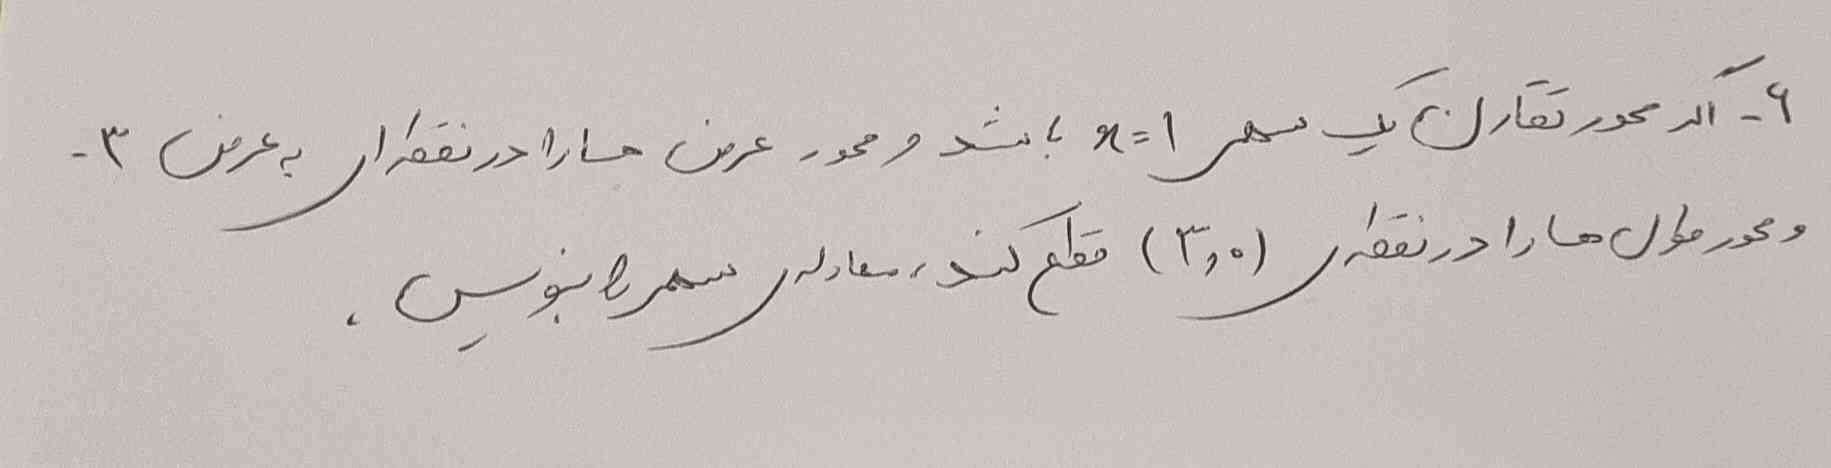 ۶- اگر محور تقارن یک سهمی x=1 باشد و محور عرض ها را در نقطه ای به عرض ۳-
و محور طول ها را در نقطه ی (۳,۰) قطع کند، معادله ی سهمی را بنویس.